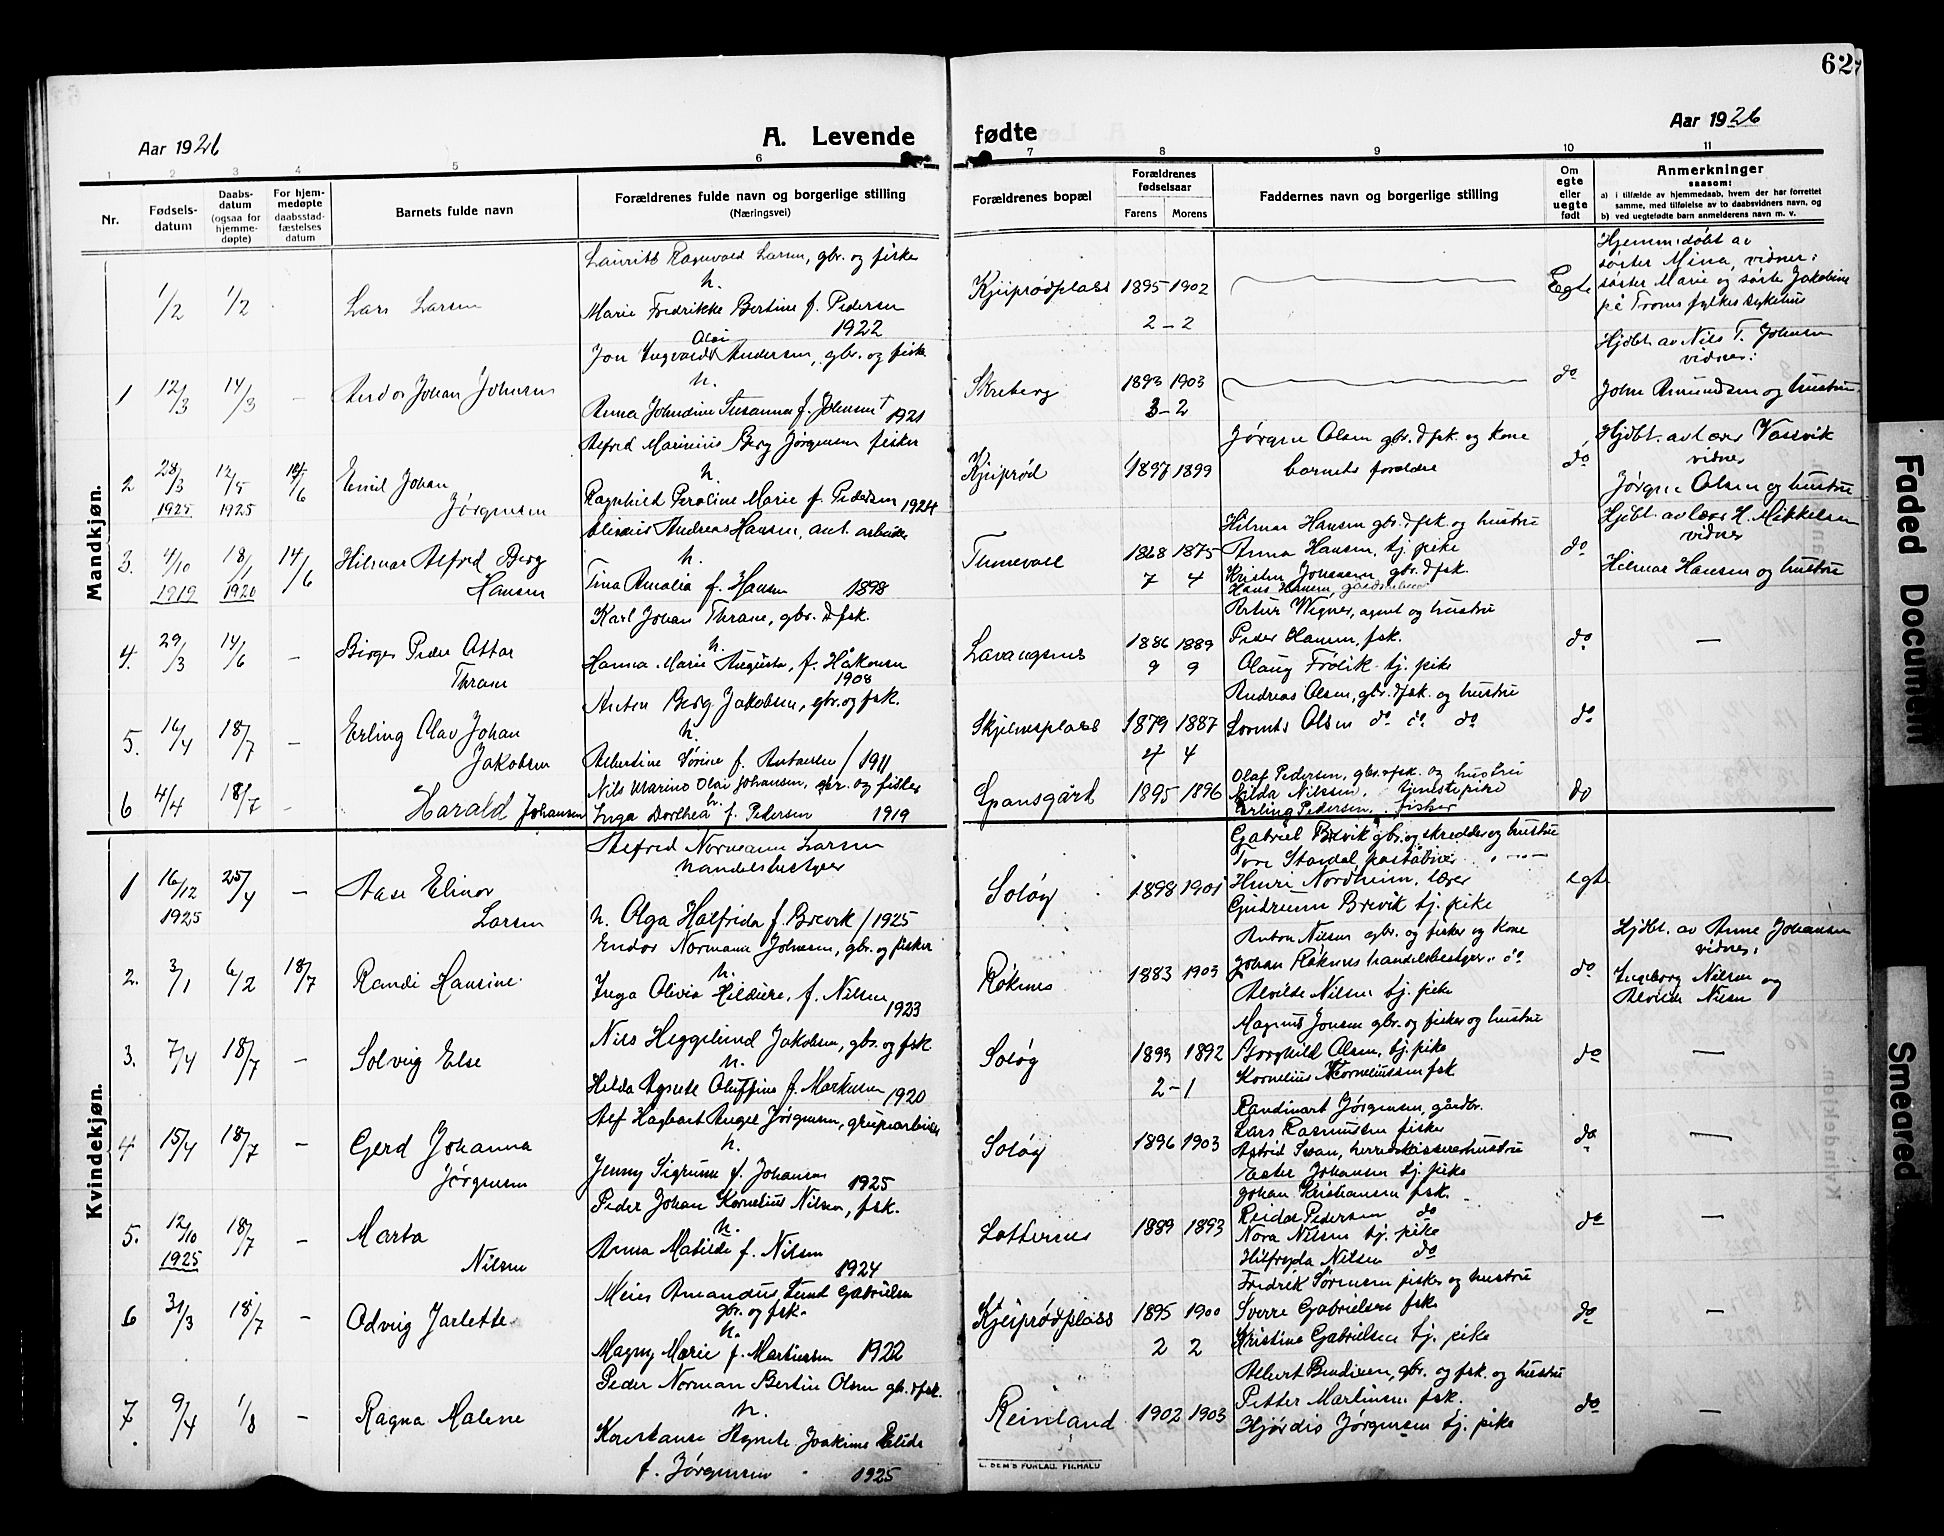 62
Aar 1926
A. Levende fødte
Aar 1926
1 2 3 4 5 6 7 8 9 10 11
Nr.
Fødsels-
datum
Daabs-
datum
(ogsaa for
hjemme-
døpte)
For hjem-
medøpte
daabsstad-
fæstelses
datum
Barnets fulde navn
Forældrenes fulde navn og borgerlige stilling
(Næringsvei)
Forældrenes bopæl
Forældrenes
fødselsaar
Farens Morens
Faddernes navn og borgerlige stilling
Om
egte
eller
uegte
født
Anmerkninger
saasom:
a) i tilfælde av hjemmedaab, hvem der har forrettet
samme, med tilføielse av to daabsvidners navn, og
b) ved uegtefødte barn anmelderens navn m. v.
Mandkjøn.
1/2 1/2
Lars Larsen
Lauritz Ragnvald Larsen, gbr. og fisker
h.
Marie Fredrikke Bertine f. Pedersen
1922
Kjeiprødplass 1895 1902
2 - 2
Egte
Hjemmedøbt av
søster Mina, vidner:
søster Marie og søster Jakobine
på Troms fylkes sykehus
1 12/3 14/3 -
Andor Johan Johnsen
Olai
Jon Ingvardt Andersen, gbr. og fisk
h.
Anna Johndine Susanna f. Johnsen 1921
Skreberg 1893 1903
3 - 2
do
Hjdbt. av Nils T. Johnsen
vidner:
John Amundsen og hustru
2 28/3 1925 12/5 1925 18/6
Emil Johan
Jørgensen
Alfred Marinius Berg Jørgensen fisker
h.
Ragnhild Peroline Marie f. Pedersen 1924
Kjeiprød 1897 1899
Jørgen Olsen gbr. & fsk. og kone
barnets foreldre
do
Hjdbt. av lærer Vassvik
vidner
Jørgen Olsen og hustru
3. 4/10 1919 18/1 1920 14/6
Hilmar Alfred Berg
Hansen
Andreas Hansen, ant. arbeider
h.
Tina Amalia f. Hansen 1898
Tennevall 1868 1875
7 4
Hilmar Hansen gbr. & fsk. og hustru
Anna Hansen, tj. pike
Kristen Johnsen gbr. & fsk.
Hans Hansen,
do
Hjdbt. av lærer H. Mikkelsen
vidner
Hilmar Hansen og hustru
4. 29/3 14/6 -
Birger Peder Ottar
Thrane
Karl Johan Thrane, gbr. & fsk.
h.
Hanna Marie Augusta, f. Håkonsen
1908
Lavangsnes 1886 1889
9 9
Artur Wigner, agent og hustru
Peder Hansen, fsk.
Olaug Frölik tj. pike
do
—
5. 16/4 18/7 -
Erling Olav Johan
Jakobsen
Anton Berg Jakobsen, gbr. og fsk.
h.
Albertine Sørine f. Antonsen / 1911
Skjelnesplass 1879 1887
4 4
Andreas Olsen, gbr. & fsk. og hustru
Lorents Olsen do do do
do
6 4/4 18/7 -
Harald Johansen
Nils Marino Olai Johansen, gbr. og fisker
h.
Inga Dorthea f. Pedersen 1919
Spansgård 1895 1896
Olaf Pedersen, gbr. & fsk. og hustru
Hilda Nilssen, tjenestepike
Erling Pedersen, fisker
do
Kvindekjøn.
1 16/12 1925 25/4 -
Aase Elinor
Larsen
Alfred Normann Larsen
handelsbestyrer
h. Olga Halfrida f. Brevik / 1925
Soløy 1898 1901
Gabriel Brevik gbr. og skredder og hustru
Tore Stardal postabner
Henri Nordheim, lærer
Gudrunn Brevik tj. pike
egte
2. 3/1 6/2 18/7
Randi Hansine
Endor Normann Johnsen, gbr. og fisker
h.
Inga Olivia Hildure, f. Nilsen
1923
Røknes 1883 1903
Anton Nilsen gbr. og fisker og kone
Johan Røknes handelsbestyrer do
Alvilde Nilsen tj. pike
do
Hjdbt. av Anne Johansen
vidner:
Ingeborg Nilsen og
Alvilde Nilsen
3. 7/4 18/7 -
Solveig Else
Nils Heggelund Jakobsen, gbr. og fsk.
h.
Hilda Agnete Oluffine f. Markusen 1920
Soløy 1893 1892
2 - 1
Magnus Jonsen gbr. og fisker og hustru
Borghild Olsen, tj. pike
Kornelius Korneliussen fsk
do
—
4 15/4 18/7 -
Gerd Johanna
Jørgensen
Alf Hagbart Angel Jørgensen, grupearbeider
h.
Jenny Sigrunn f. Johansen
1925
Soløy 1896 1903
Randinart Jørgensen, gårdbr.
Lars Rasmussen fisker
Astrid Svan, herredskassererhustru
Ester Johansen tj. pike
Johan Kristiansen fsk.
do
—
5. 12/10 1925 18/7 -
Marta
Nilsen
Peder Johan Kornelius Nilsen, fsk.
h.
Anna Matilde f. Nilsen
1924
1889 1893
Reidar Pedersen do
Nora Nilsen tj. pike
Hilfryda Nilsen do
do
—
6 31/3 18/7 -
Odveig Jarlette
Meier Amandus Lund Gabrielsen
gbr. og fsk.
h.
Magny Marie f. Martinsen 1922
Kjeiprødplass 1895 1900
2 2
Fredrik Sørensen fisker og hustru
Sverre Gabrielsen fsk
Kristine Gabrielsen tj. pike
do
—
7 9/4 1/8 -
Ragna Malene
Peder Norman Bertin Olsen gb. & fsk.
h.
Konstanse Agnete Joakime Elida
f. Jørgensen 1925
Reinland 1902 1903
Albert Bendiksen, gbr. og fsk. og hustru
Petter Martinsen fsk.
Hjørdis Jørgensen tj. pike
do
—
E. SEM'S FORLAG. FR.HALD
Faded Document
Smeared